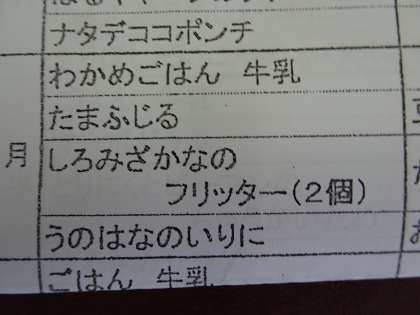 ナタデココポンチ
わかめごはん 牛乳
たまふじる
月
しろみざかなの
フリッター(2個)
うのはなのいりに
ごはん 牛乳